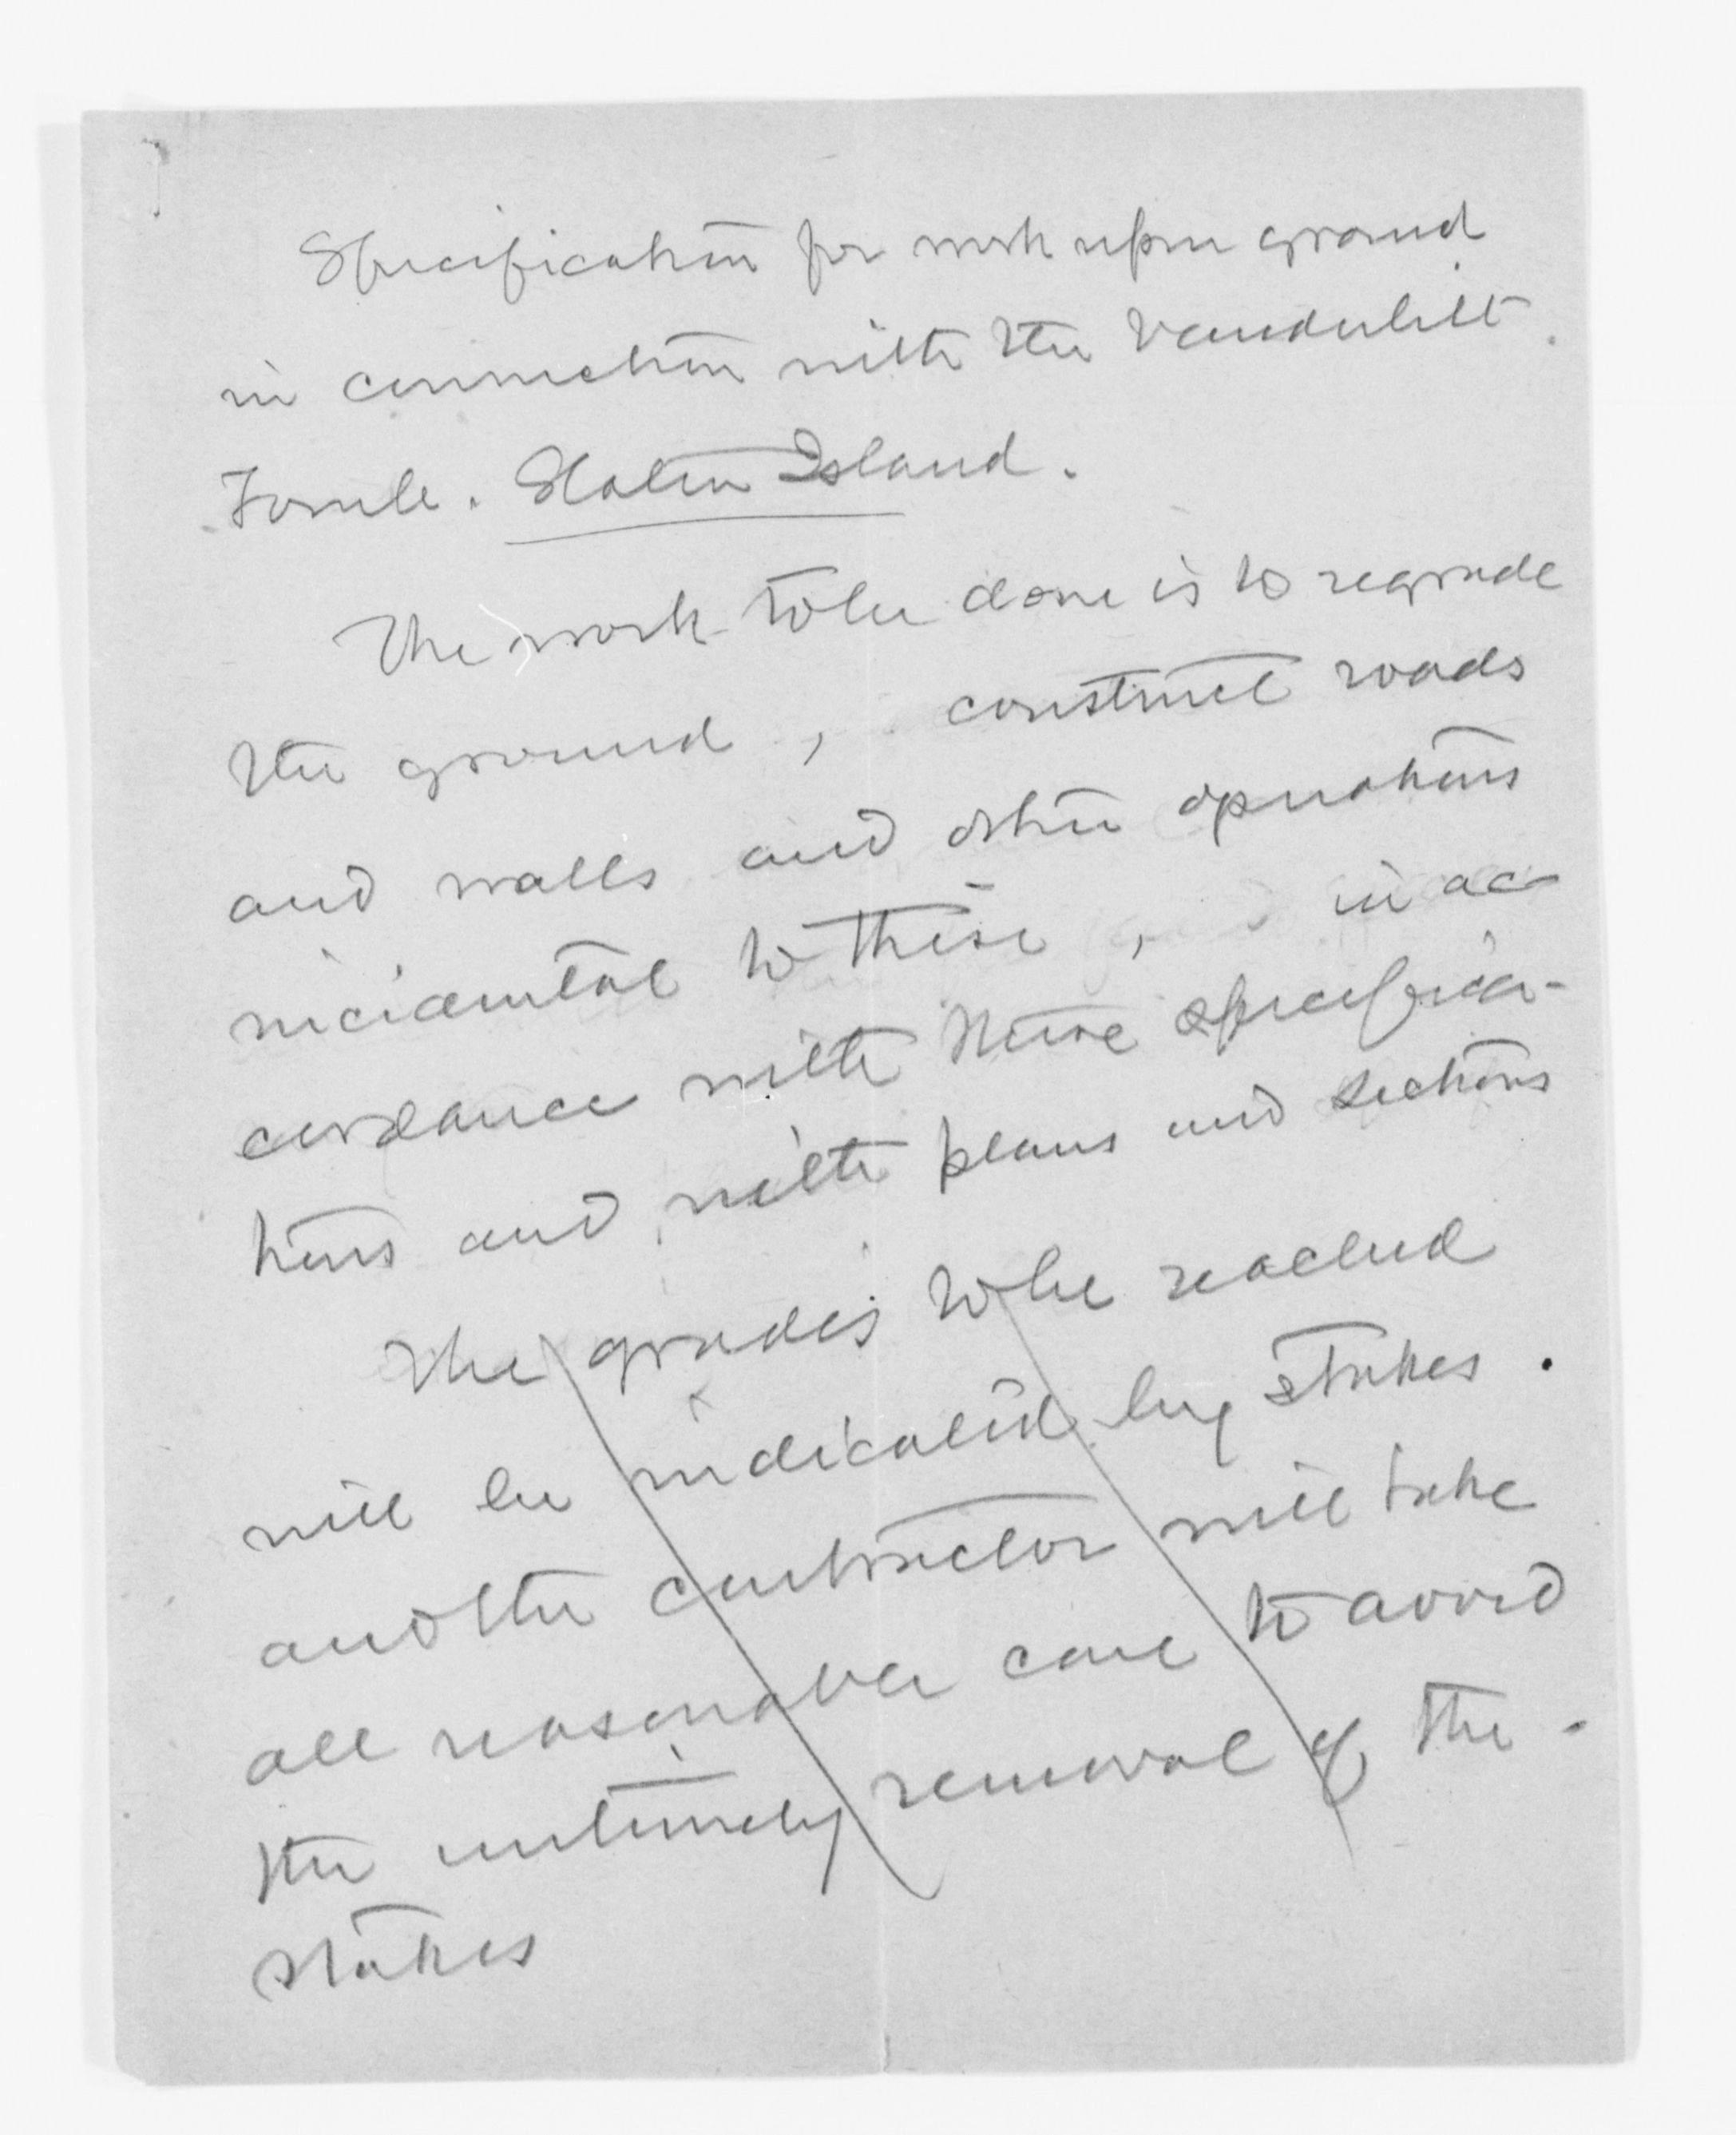 Specification for work upon ground
in connection with the Vanderbilt
Tomb. Staten Island.
The work to be done is to regrade
the ground, construct roads
and walls and other operations
incidental to these, in ac
cordance with these specifica-
tions and with plans and sections
The grades to be reached
will be indicated by stakes.
and the contractor will take
all reasonable care to avoid
the untimely removal of the
stakes